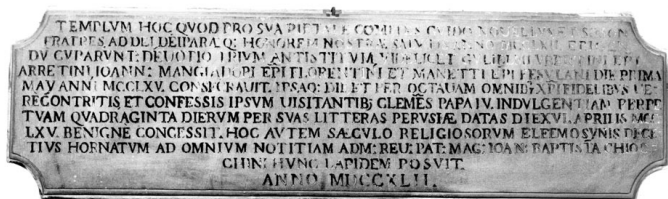 TEMPLVM HOC QVOD PRO SVA PIETATE COMITES GVIDO
FRATRES, AD DEI, DEIPARÆ Q; HONOREM NOSTRÆ
DV CVPARVNT: DEVOTIO
ARRETINI, IOANN: MANGIADORI EPI FLORENTINI ET MANETTI EPI FESVLANI DIE PRIMA
MAY ANNI MCCLXV. CONSECRAVIT. IPSAQ: DIE ET PER OCTAVAM OMNIB; XPI FIDELIBVS VE
RE CONTRITIS, ET CONFESSIS IPSVM UISITANTIB; CLEMĒS PAPA IV. INDVLGENTIAM PERPE
TVAM QVADRAGINTA DIERVM PER SVAS LITTERAS PERVSIÆ DATAS DIE XVI. APRILIS MCC
LXV. BENIGNE CONCESSIT. HOC AVTEM SÆCVLO RELIGIOSORVM ELEEMOSYNIS DECE
TIVS HORNATVM AD OMNIVM NOTITIAM ADM: REV: PAT: MAG: IOAN: BAPTISTA CHIOS
CHINI HVNC LAPIDEM POSVIT.
ANNO MDCCXLII.